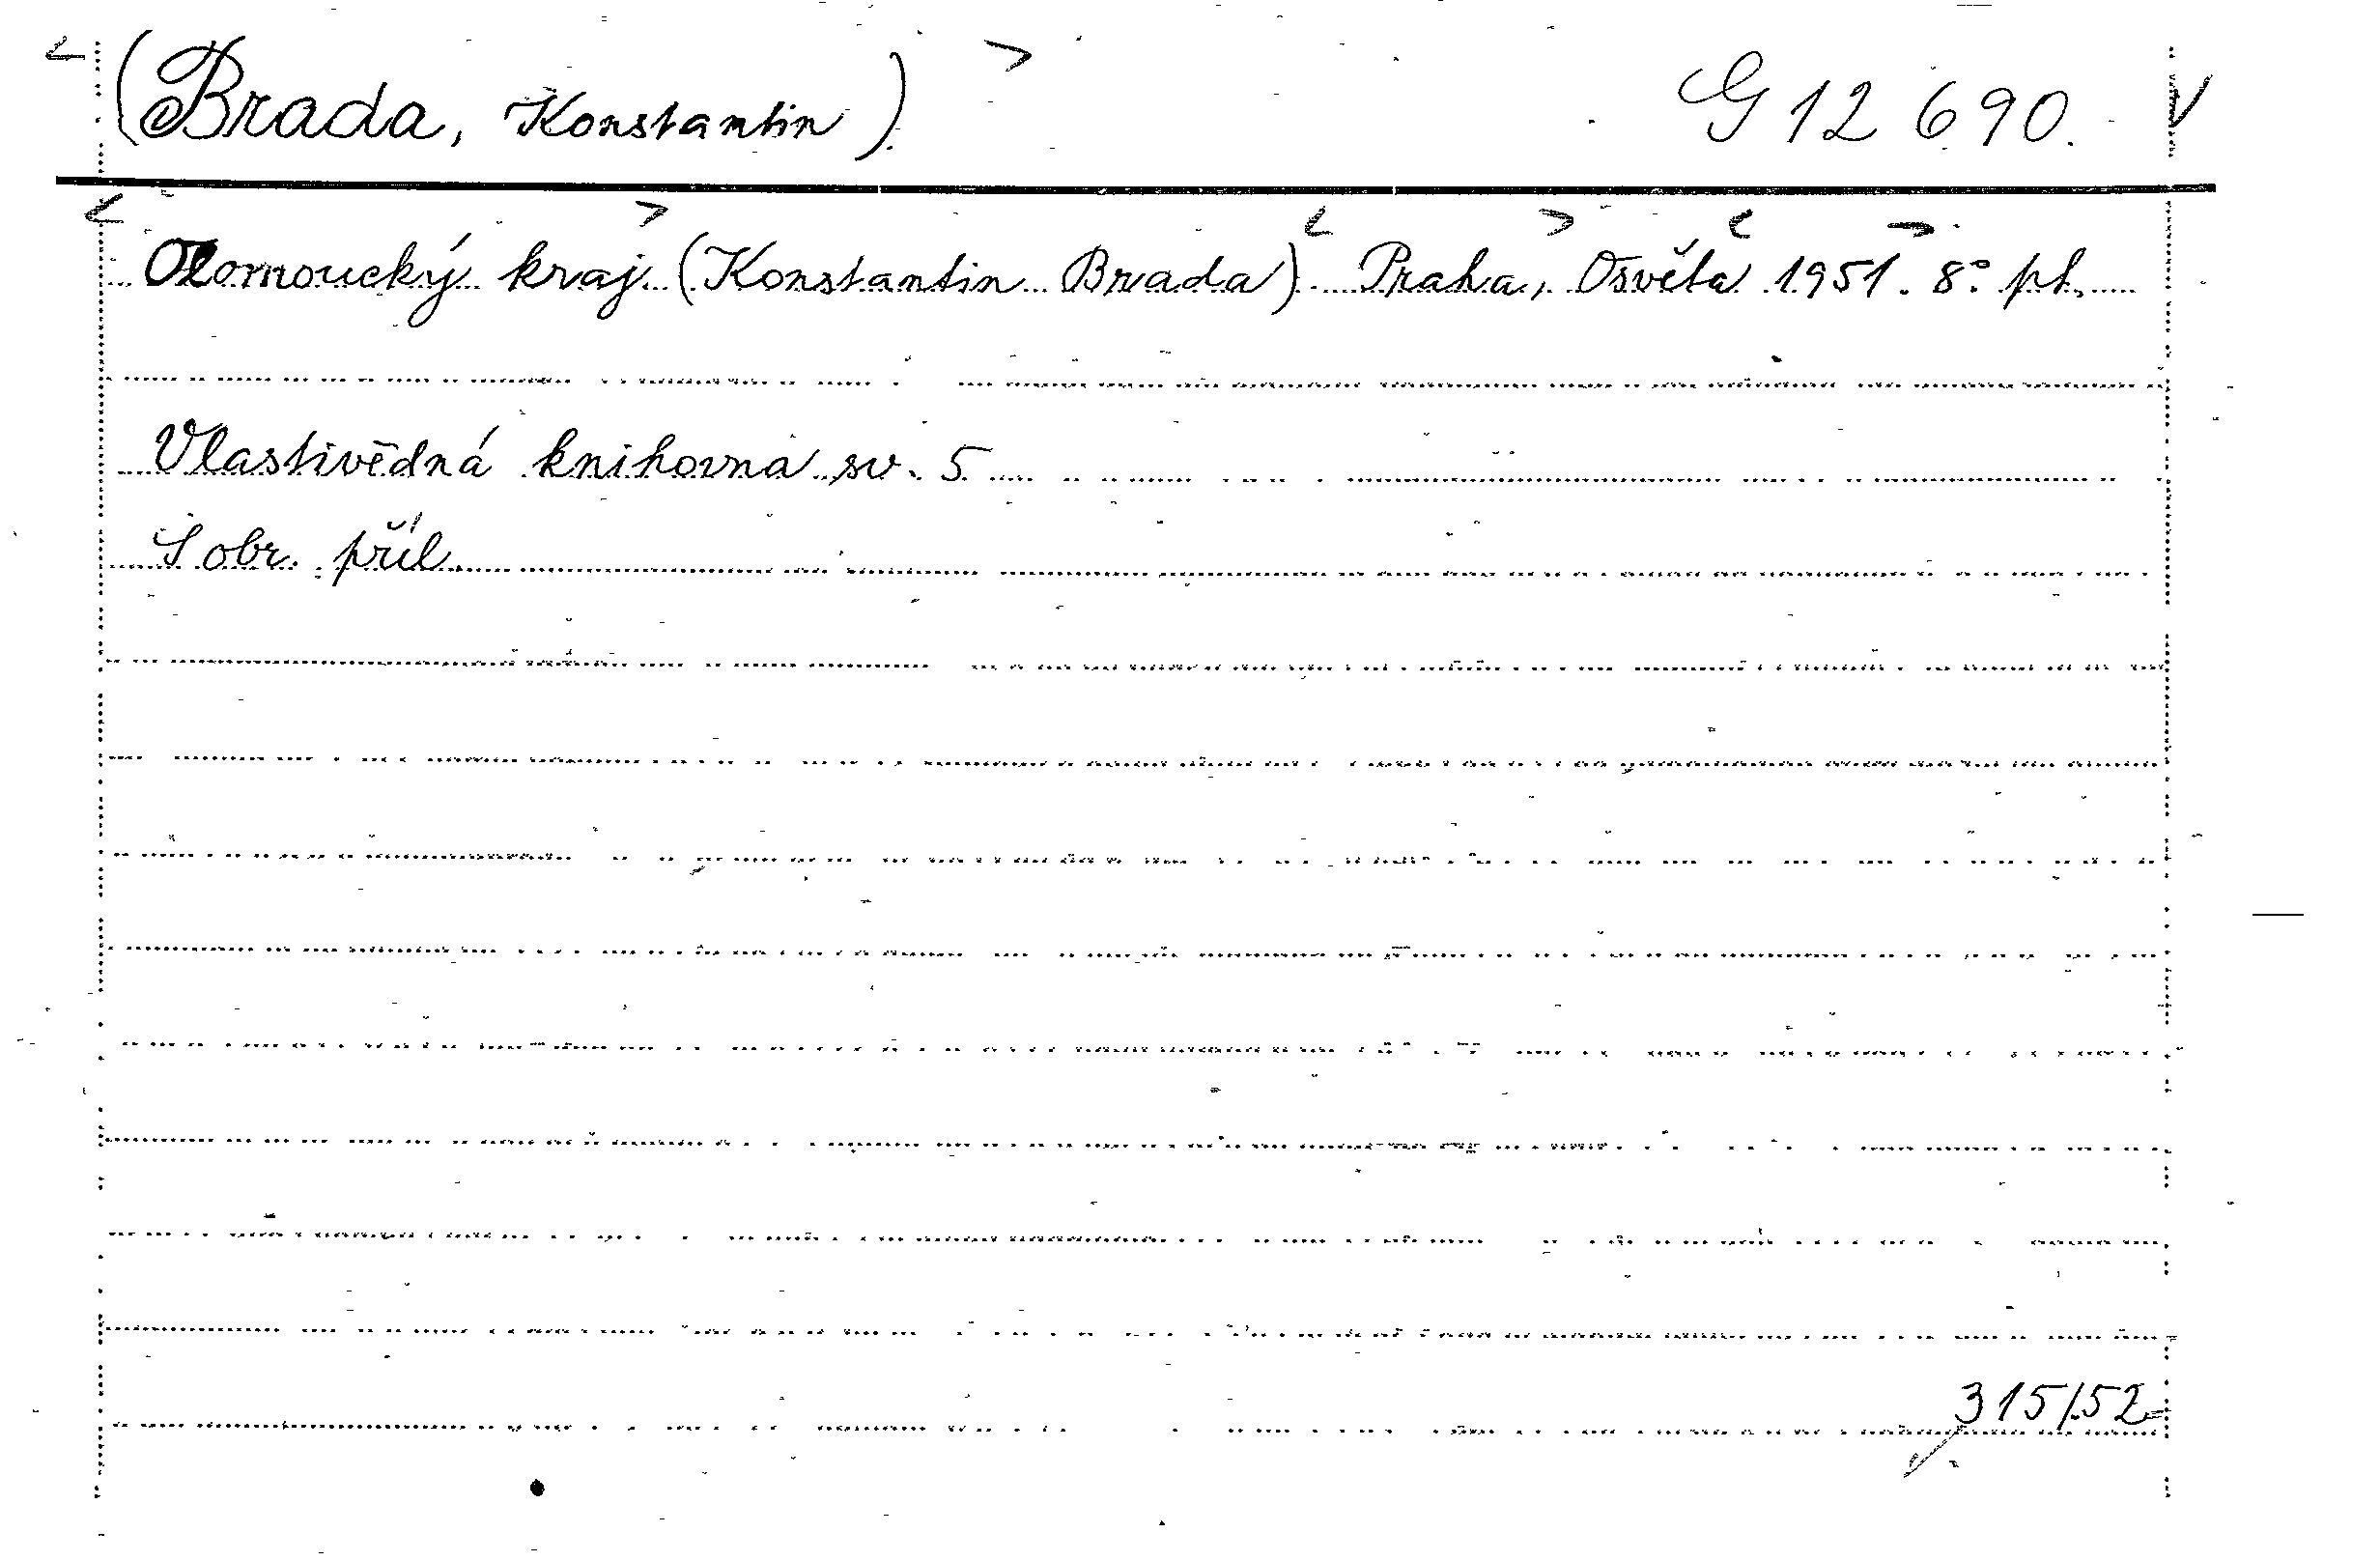 (Brada, Konstantin) G 12 690.
Olomoucký kraj (Konstantin Brada) Praha, Osvěta 1951. 8° pt.
Vlastivědná knihovna sv. 5
S obr. příl.
315/52